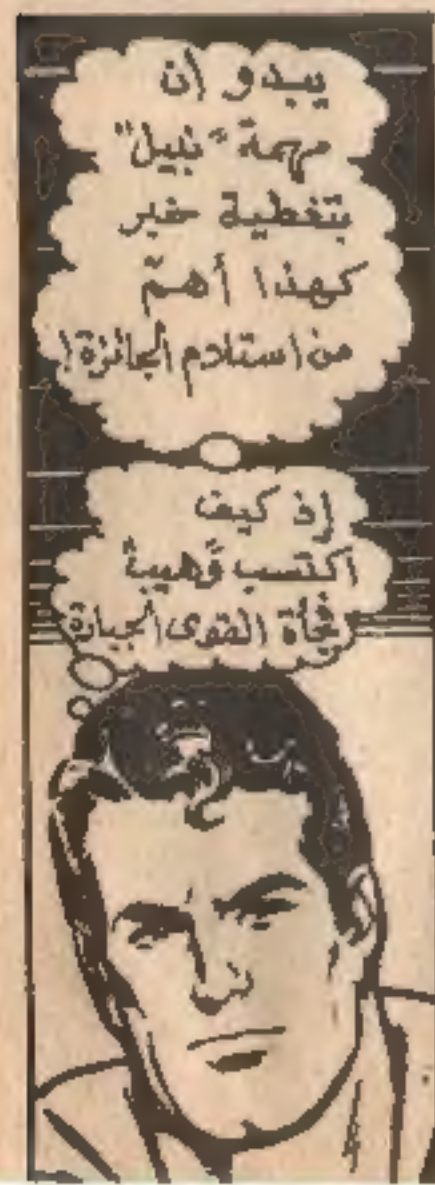 يبدو ان
مهمة "نبيل"
بتغطية خبر
كهذا أهمّ
من استلام الجائزة!
إذ كيف
اكتسب وهيبة
فجأة القوى الجبارة